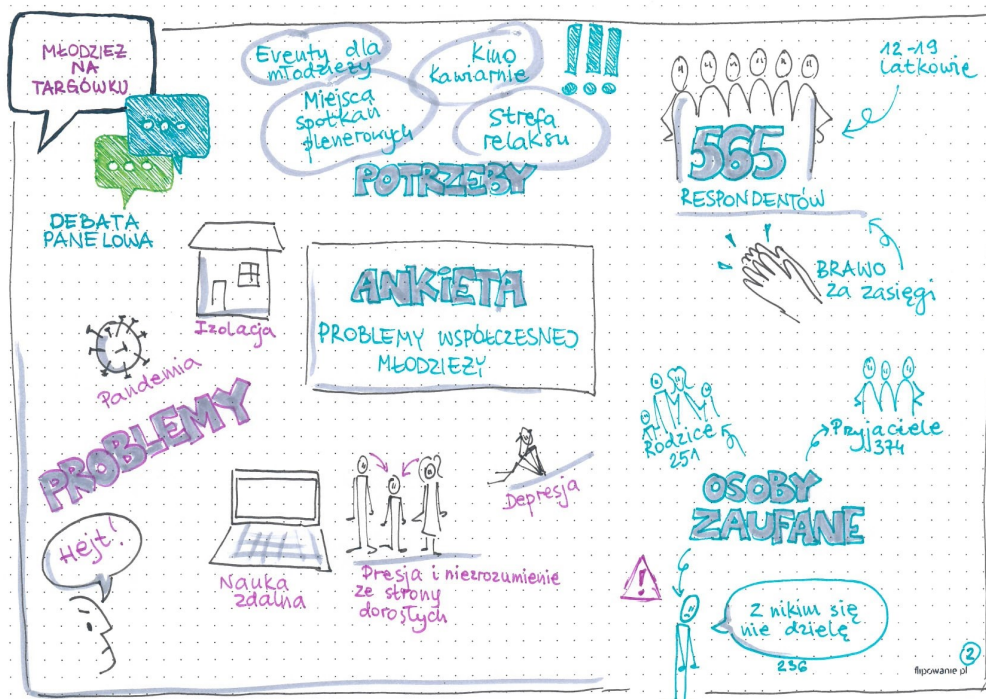 MŁODZIEŻ
NA
TARGÓWKU
DEBATA
PANELOWA
Eventy dla
młodzieży
Kino
Kawiarnie
!!!
Miejsca
spotkań
plenerowych
Strefa
relaksu
POTRZEBY
12-19
latkowie
565
RESPONDENTÓW
BRAWO
za zasięgi
ANKIETA
PROBLEMY WSPÓŁCZESNEJ
MŁODZIEŻY
Izolacja
Pandemia
PROBLEMY
Hejt!
Nauka
zdalna
Presja i niezrozumienie
ze strony
dorosłych
Depresja
Rodzice
251
Przyjaciele
374
OSOBY
ZAUFANE
!
Z nikim się
nie dzielę
236
2
flipowanie.pl